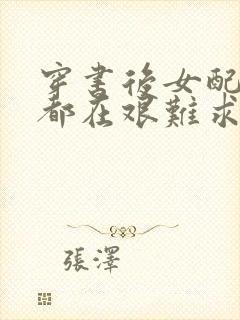 穿書後女配
都在艱難求
張澤